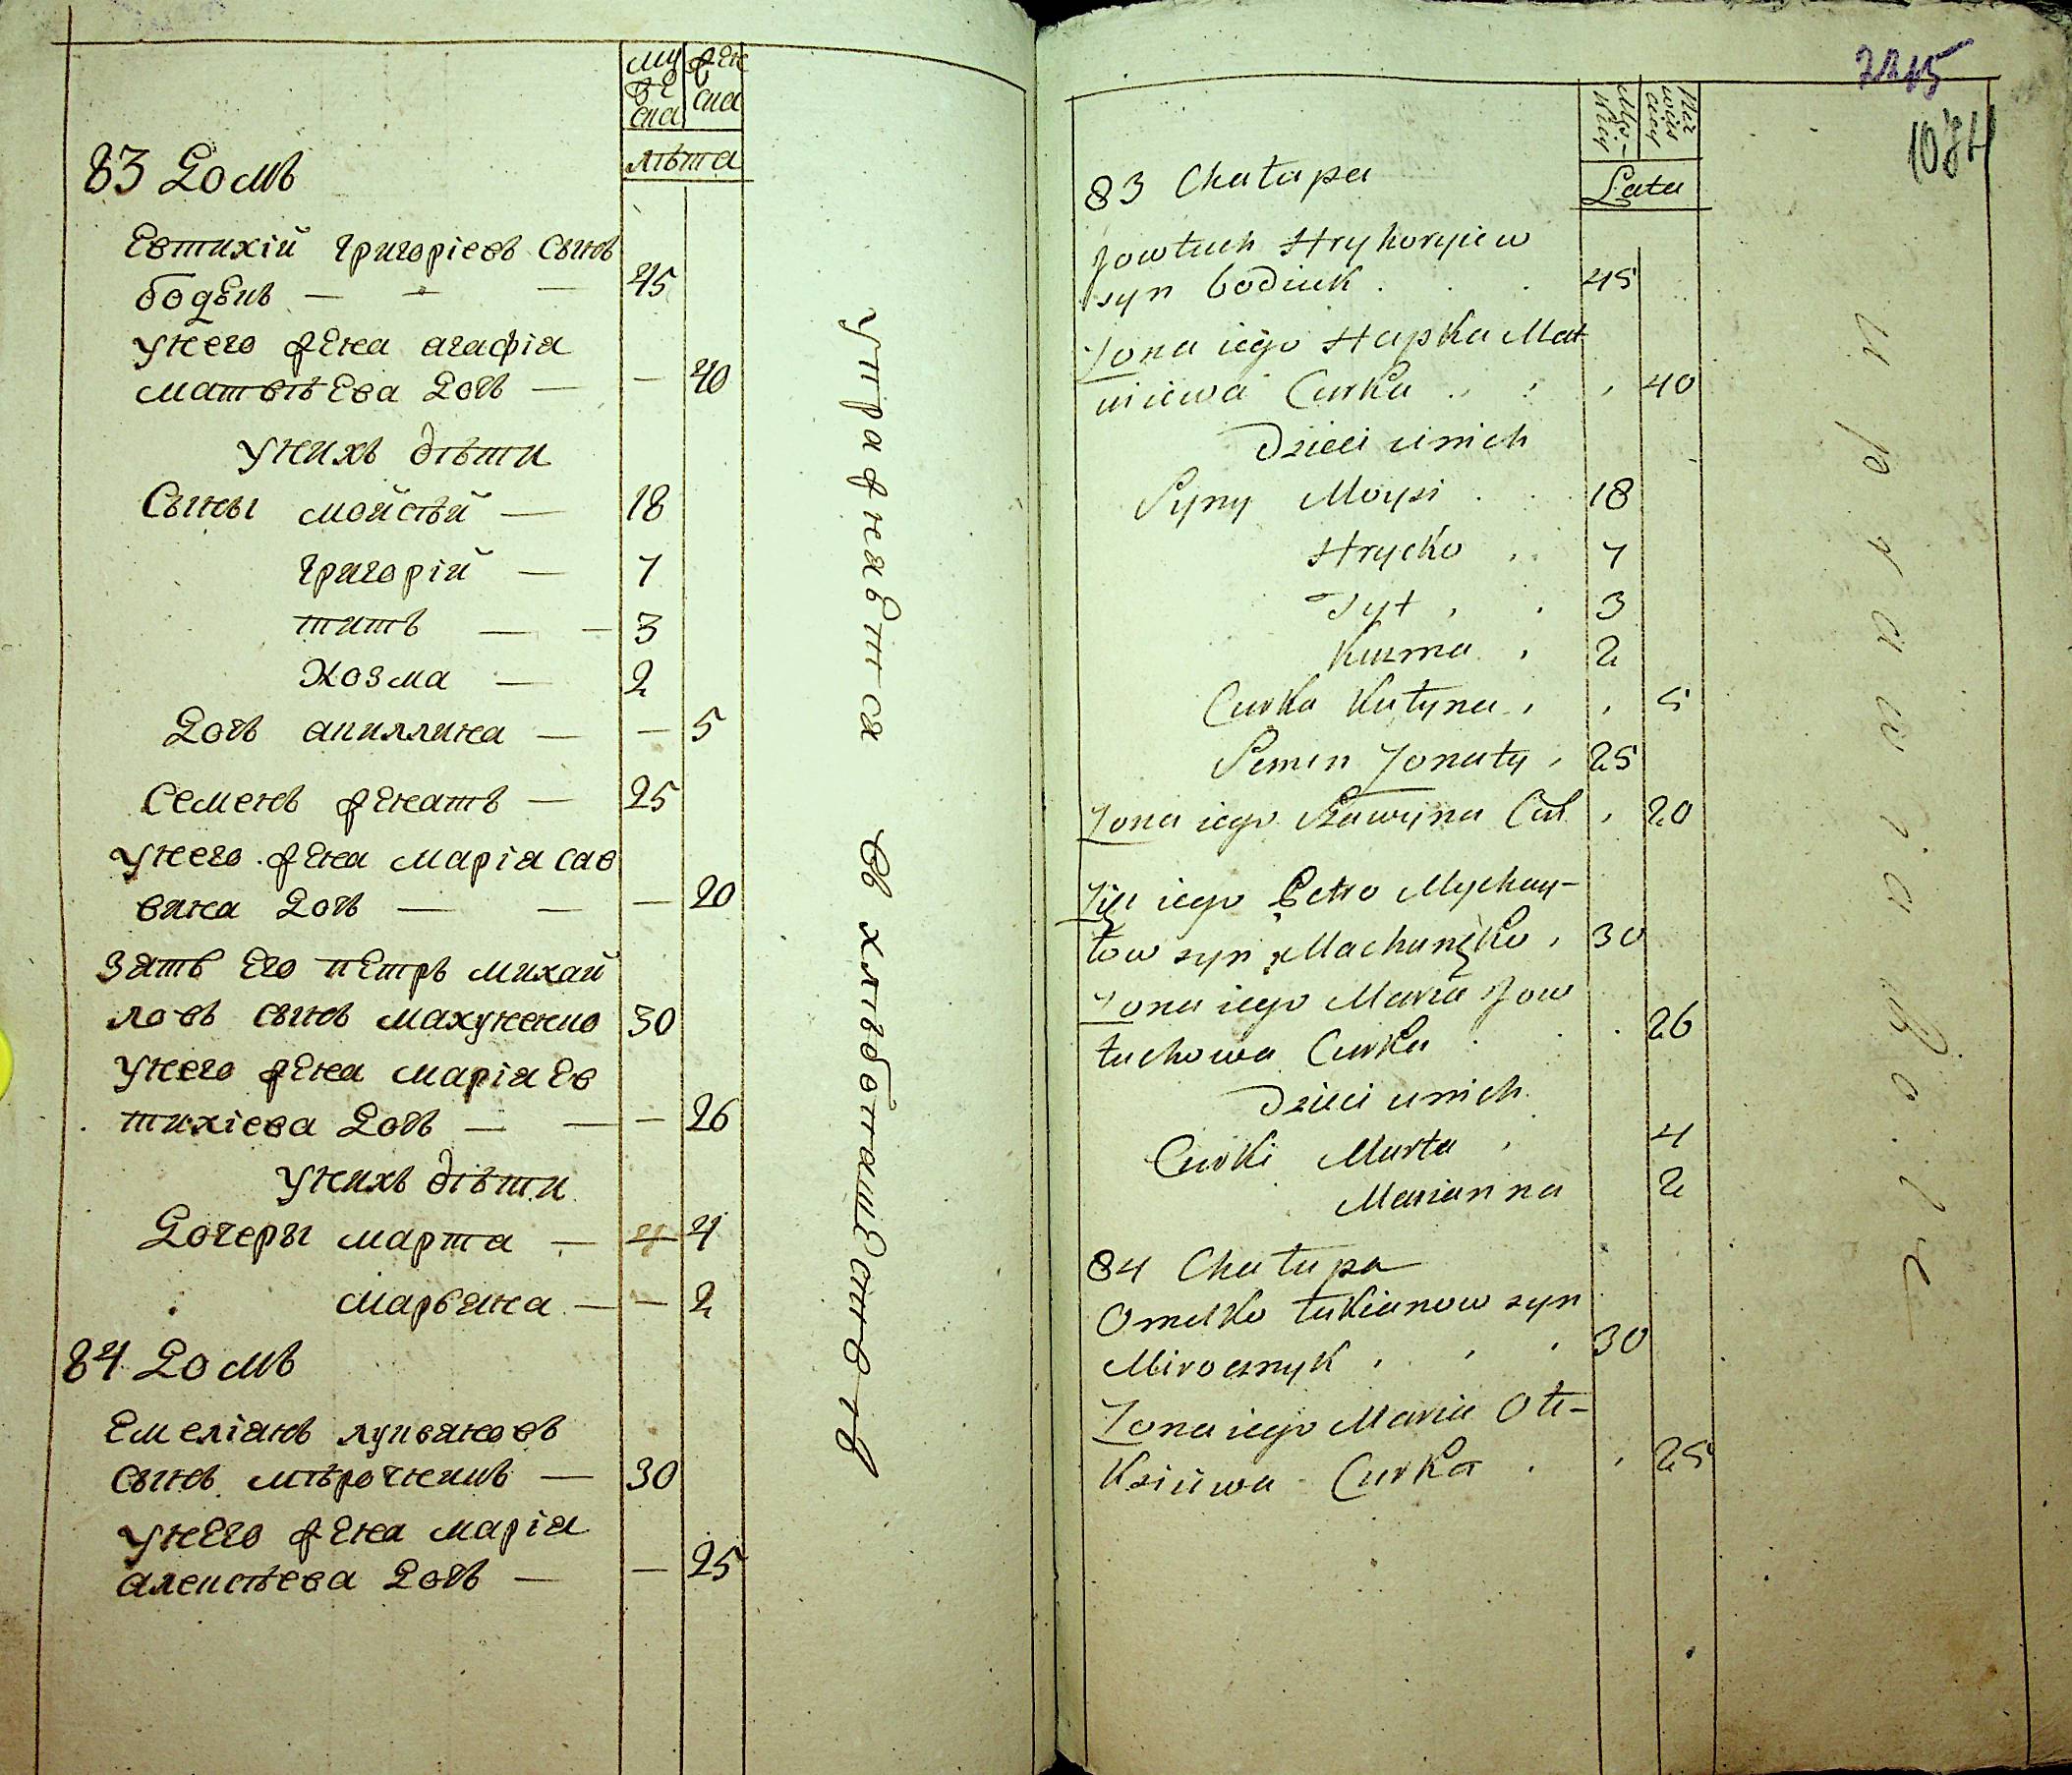 муже
ска
женска
лѣта
83 Домъ
Евтихій Григоріевъ сынъ
бодекъ — — — 45
унего жена агафіа
матвѣева дочь — — 40
унихъ дѣти
Сыны мойсѣй — 18
григорій — 7
титъ — — 3
Козма — 2
Дочь акиллина — — 5
Семенъ женатъ — 25
унего жена маріа сав
вина дочь — — — 20
зять его петръ михай
ловъ сынъ махуненко 30
унего жена маріа Ев
тихіева дочь — — — 26
унихъ дѣти
Дочеры марта — 4 4
марьяна — — 2
84 Домъ
Емеліанъ лукьяновъ
сынъ мѣрочникъ — 30
унего жена маріа
алексѣева дочь — — 25
упражняется въ хлѣбопашественнѣ
2215
1074
Męz-
kiey
Niewias
ciey
Lata
83 Chałupa
Jowtuch Hryhoryiew
syn bodiuk . . . 45
Żona iego Hapka Mat
wiiewa Curka . . , 40
Dzieci unich
Syny Moysi . . 18
Hrycko . . 7
Tyt . . 3
Kuzma . 2
Curka Kułyna . , 5
Semen Żonaty , 25
Żona iego Sławyna Cur , 20
Zięc iego Petro Mychay-
łow syn Machunęko , 30
Żona iego Maria Jow
tuchowa Curka . . . 26
Dzieci unich
Curki Marta , 4
Marianna 2
84 Chałupa
Omelko Łukianow syn
Mirocznyk , , , 30
Żona iego Maria Ole-
ksiiwa Curka . , 25
uprawia Role